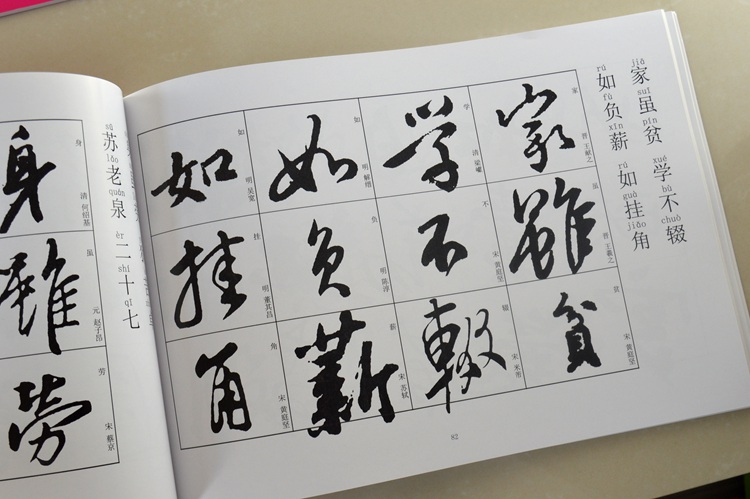 jiā suī pín xué bù chuò
家虽贫 学不辍
rú fù xīn rú guà jiǎo
如负薪 如挂角
家
家
晋 王献之
雖
虽
晋 王羲之
貧
贫
宋 黄庭坚
学
学
清 梁巘
不
不
宋 黄庭坚
輟
辍
宋 米芾
如
如
明 解缙
负
负
明 陈淳
薪
薪
宋 苏轼
如
如
明 吴宽
挂
挂
明 董其昌
角
角
宋 黄庭坚
82
sū lǎo quán èr shí qī
苏老泉 二十七
身
身
清 何绍基
雖
虽
元 赵子昂
勞
劳
宋 蔡京